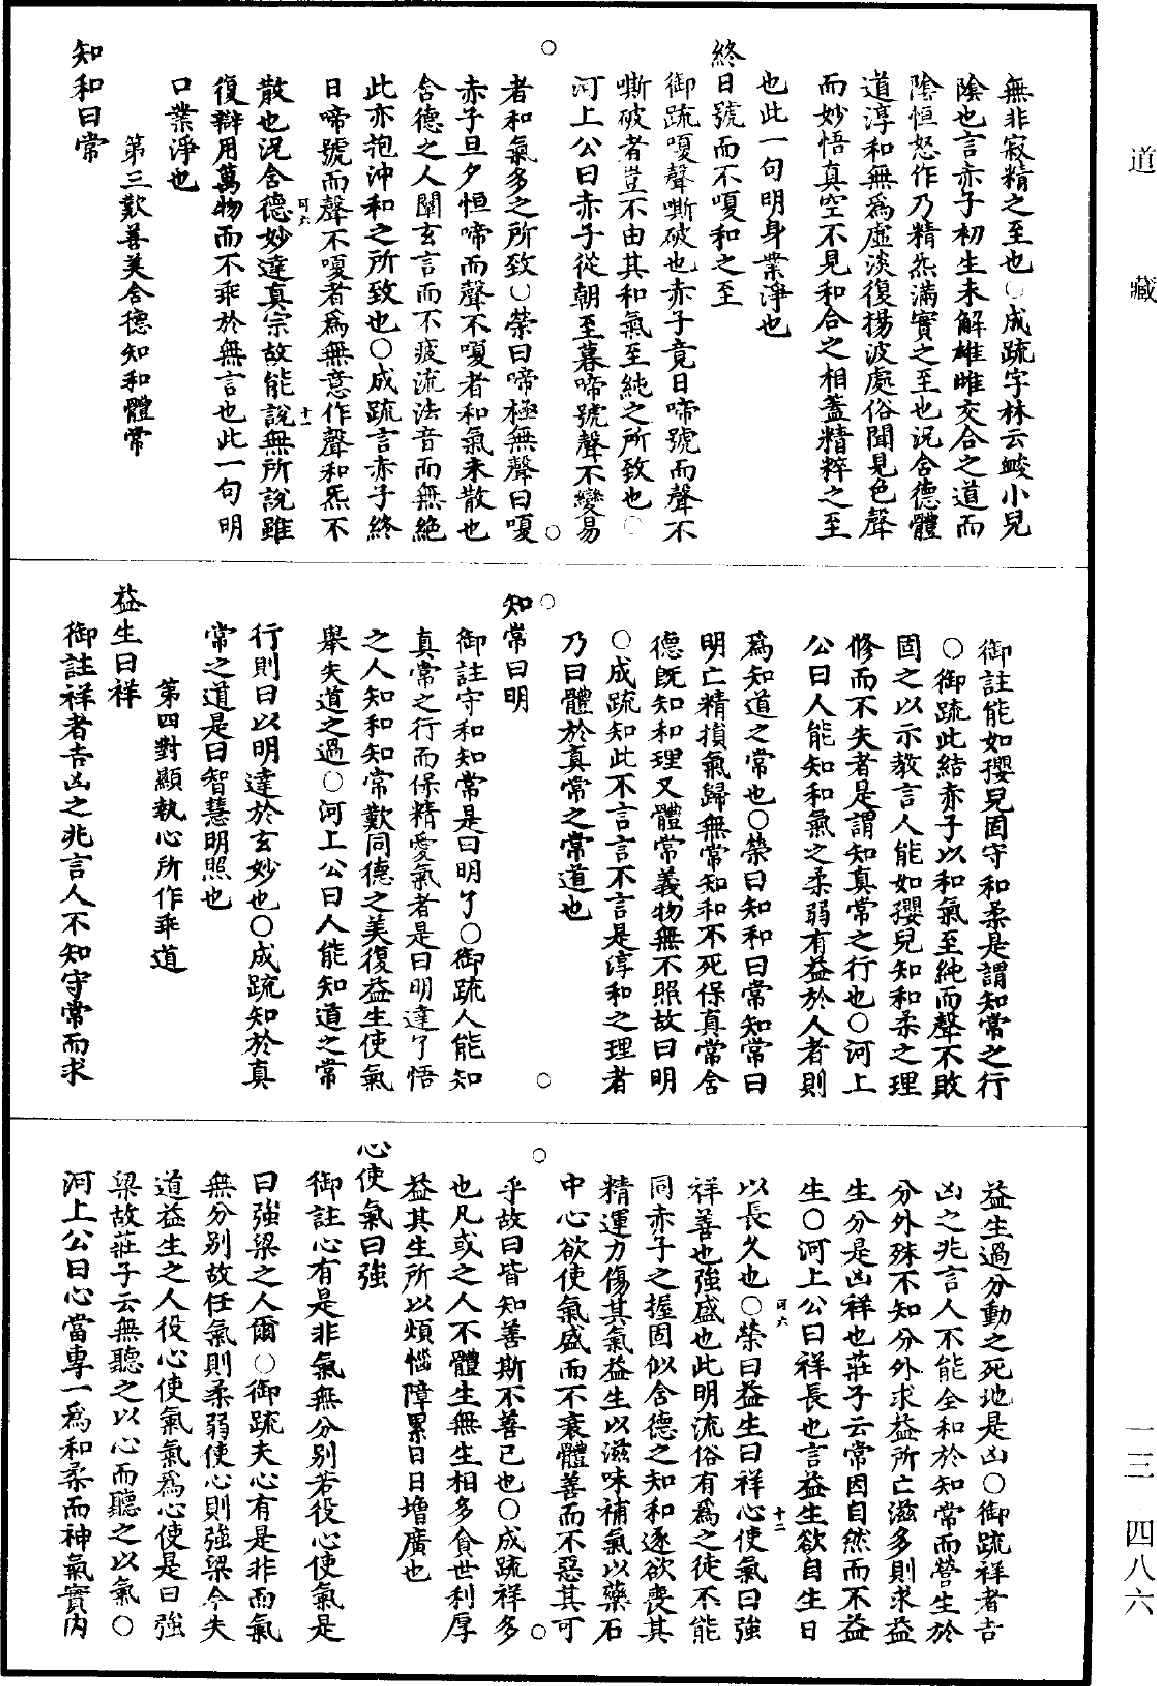 道藏
無非寂精之至也○成疏字林云䘒小兒
陰也言赤子初生未解雄雌交合之道而
陰恒怒作乃精炁滿實之至也況含德體
道淳和無為虛淡復揚波處俗聞見色聲
而妙悟真空不見和合之相蓋精粹之至
也此一句明身業淨也
終日號而不嗄和之至
御疏嗄聲嘶破也赤子竟日啼號而聲不
嘶破者豈不由其和氣至純之所致也○
河上公曰赤子從朝至暮啼號聲不變易
者和氣多之所致○榮曰啼極無聲曰嗄
赤子旦夕恒啼而聲不嗄者和氣未散也
含德之人闡玄言而不疲流法音而無絶
此亦抱沖和之所致也○成疏言赤子終
日啼號而聲不嗄者為無意作聲和炁不
散也況含德妙達真宗故能說無所說雖
復辯用萬物而不乖於無言也此一句明
口業淨也
第三歎善美含德知和體常
知和曰常
御註能如孾兒固守和柔是謂知常之行
○御疏此結赤子以和氣至純而聲不敗
固之以示教言人能如孾兒知和柔之理
修而不失者是謂知真常之行也○河上
公曰人能知和氣之柔弱有益於人者則
為知道之常也○榮曰知和曰常知常曰
明亡精損氣歸無常知和不死保真常含
德旣知和理又體常義物無不照故曰明
○成疏知此不言言不言是淳和之理者
乃曰體於真常之常道也
知常曰明
御註守和知常是曰明了○御疏人能知
真常之行而保精愛氣者是曰明達了悟
之人知和知常歎同德之美復益生使氣
舉失道之過○河上公曰人能知道之常
行則曰以明達於玄妙也○成疏知於真
常之道是曰智慧明照也
第四對顯執心所作乖道
益生曰祥
御註祥者吉凶之兆言人不知守常而求
益生過分動之死地是凶○御疏祥者吉
凶之兆言人不能全和於知常而營生於
分外殊不知分外求益所亡滋多則求益
生分是凶祥也莊子云常因自然而不益
生○河上公曰祥長也言益生欲自生日
以長久也○榮曰益生曰祥心使氣曰強
祥善也強盛也此明流俗有為之徒不能
同赤子之握固似含德之知和逐欲喪其
精運力傷其氣益生以滋味補氣以藥石
中心欲使氣盛而不衰體善而不惡其可
乎故曰皆知善斯不善已也○成疏祥多
也凡或之人不體生無生相多貪世利厚
益其生所以煩惱障累日日增廣也
心使氣曰強
御註心有是非氣無分別若役心使氣是
曰強梁之人爾○御疏夫心有是非而氣
無分别故任氣則柔弱使心則強梁今失
道益生之人役心使氣氣為心使是曰強
梁故莊子云無聽之以心而聽之以氣○
河上公曰心當專一為和柔而神氣實内
一三 四八六